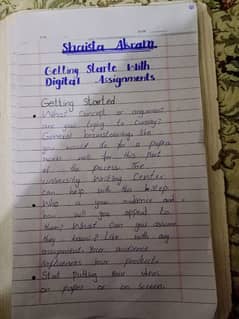 Shaista Akram
Getting Starte With
Digital Assignments
Getting Started
What Concept or argument
are you trying to convey?
General brainstorming like
you would do for a paper
works well for this part
of the process. The
University Writing Center
can help with this step.
Who is your audience and
how will you appeal to
them? What can you assume
they know? Like with any
assignment your audience
influences your products
Start putting your ideas
on paper or on screen